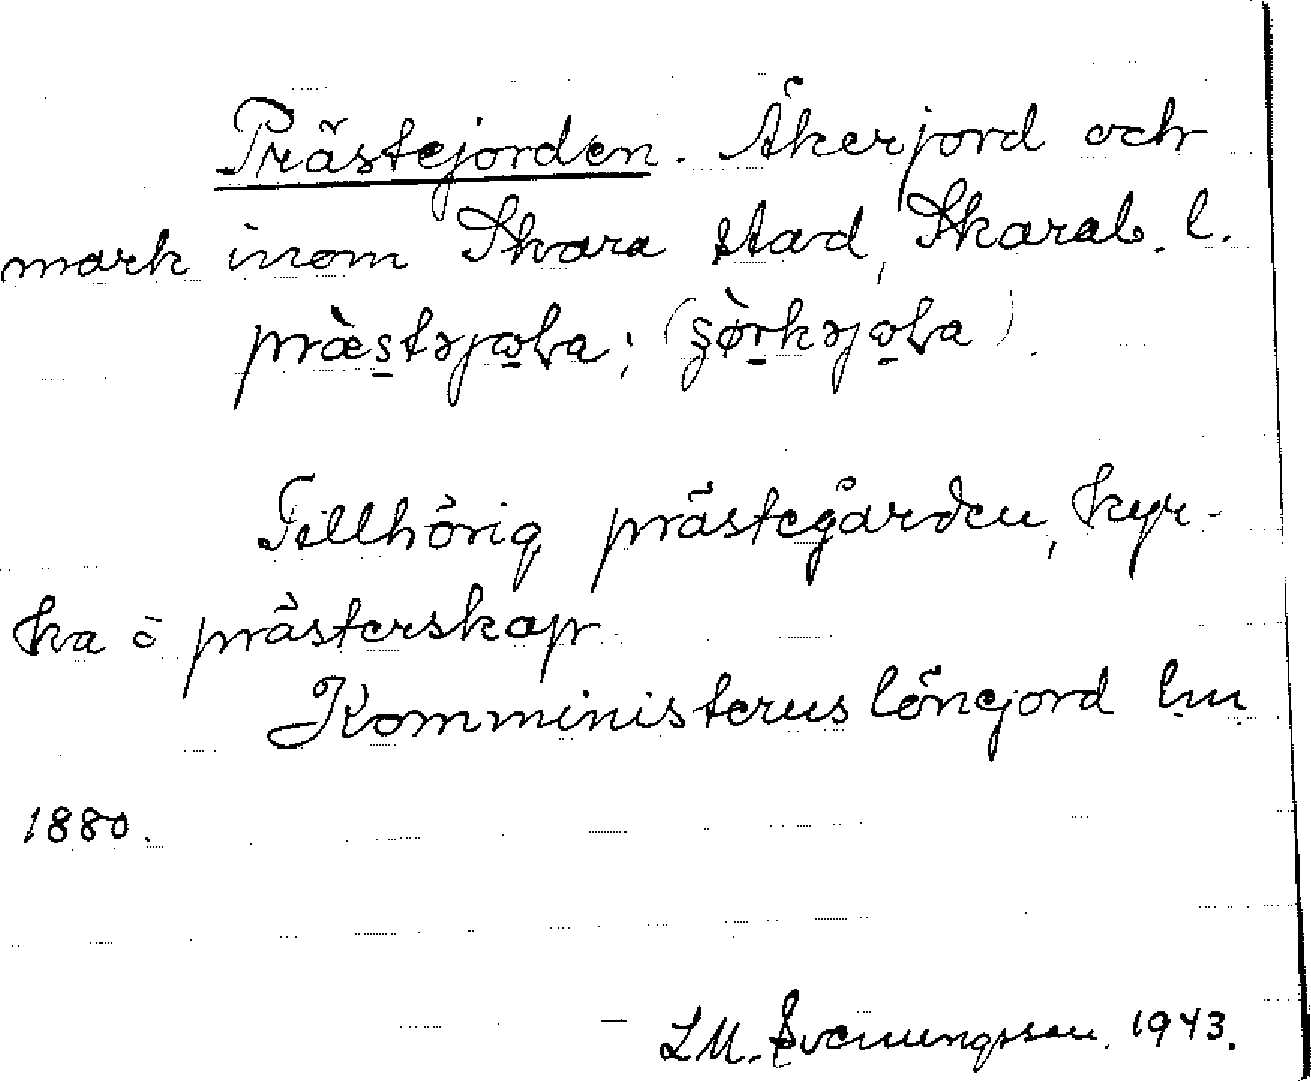 Prästejorden. Åkerjord och
mark inom Skara stad, Skarab. l.
præ̀s̱təjo̱ɽa; (
Tillhörig prästegården, kyr-
ka o prästerskap
Komministerns lönejord lm
1880.
L M. Svenungsson 1943.